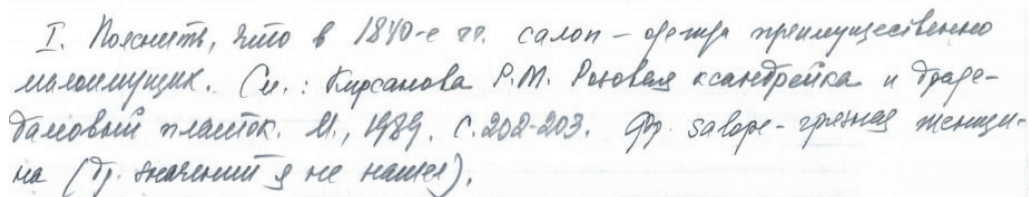 I. Пояснить, что в 1840-е гг. салоп – одежда преимущественно
малоимущих. См.: Кирсанова Р.М. Розовая ксандрейка и драде-
дамовый платок. М., 1989. С. 202-203. Фр. salope - грязная женщи-
на (др. значений я не нашел).